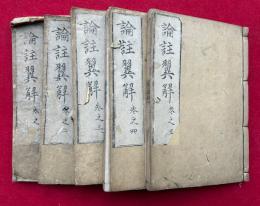 論註翼解 卷之五
論註翼解 卷之四
論註翼解 卷之三
論註翼解 卷之二
論註翼解 卷之